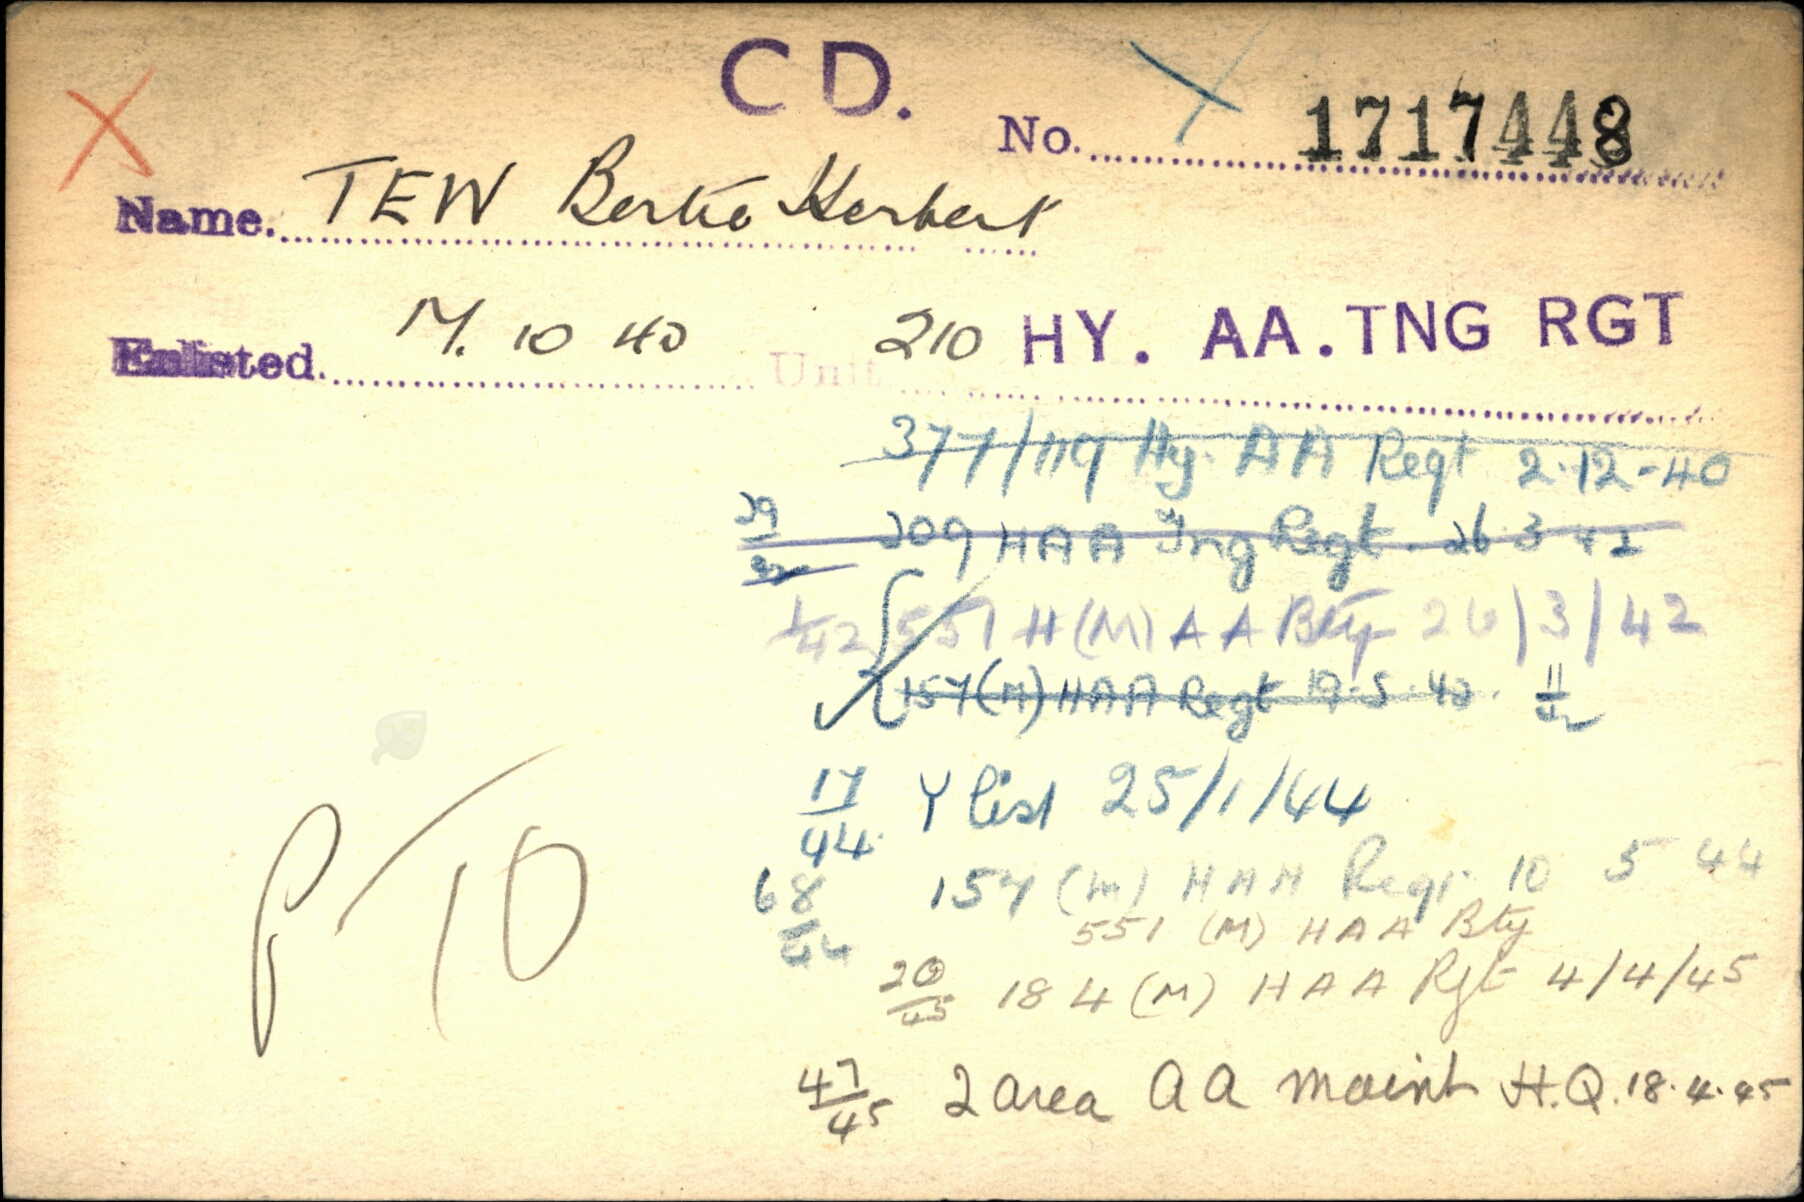 CD.
No. 1717448
Name. TEW Bertie Herbert
Enlisted. 17. 10 40 Unit 210 HY. AA. TNG RGT
377/119 Hy. AA Regt 2.12-40
29 209 HAA Tng Regt. 26.3 42
1/42 551 H(M) AA Bty 26/3/42
157(M) HAA Regt 19-5-42. 11/42
17/44 Y list 25/1/44
68/44 157 (M) HAA Regt. 10 5 44
551 (M) HAA Bty
20/45 184 (M) HAA Rgt 4/4/45
47/45 2 area AA maint H.Q. 18.4.45
PTO